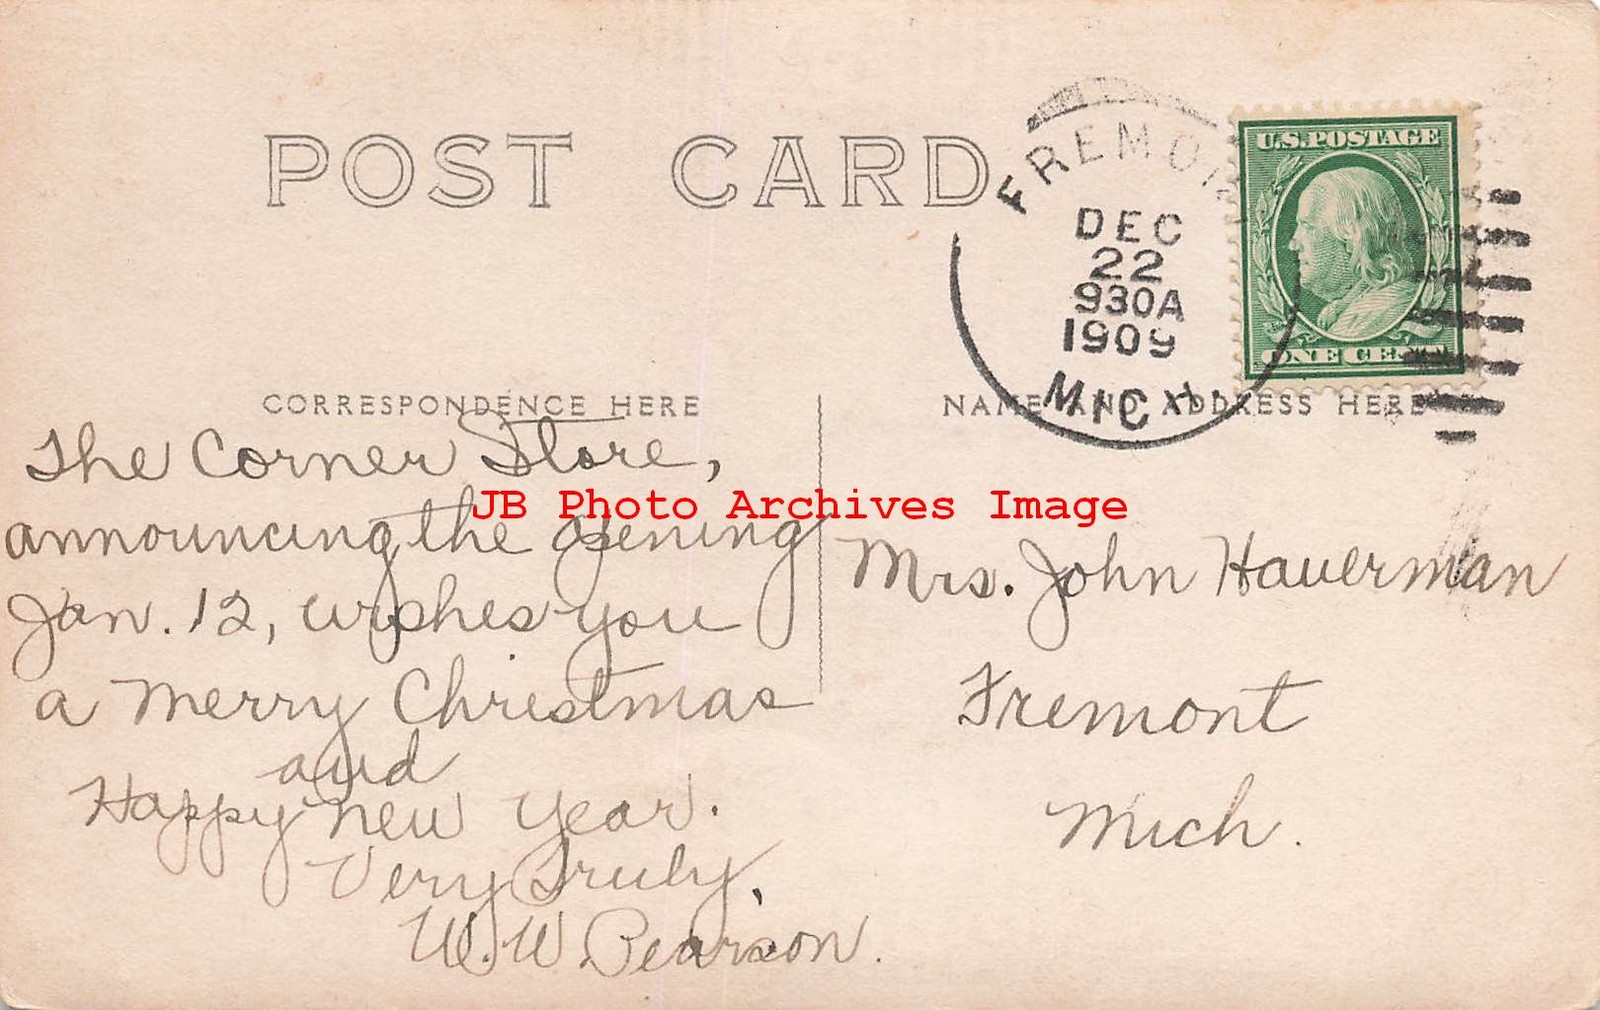 POST CARD
FREMONT
DEC
22
930A
1909
MICH.
U.S. POSTAGE
ONE CENT
CORRESPONDENCE HERE
NAME AND ADDRESS HERE
The Corner Store,
announcing the opening
Jan. 12, wishes you
a Merry Christmas
and
Happy New Year.
Very Truly,
W. W. Pearson.
JB Photo Archives Image
Mrs. John Hauerman
Fremont
Mich.